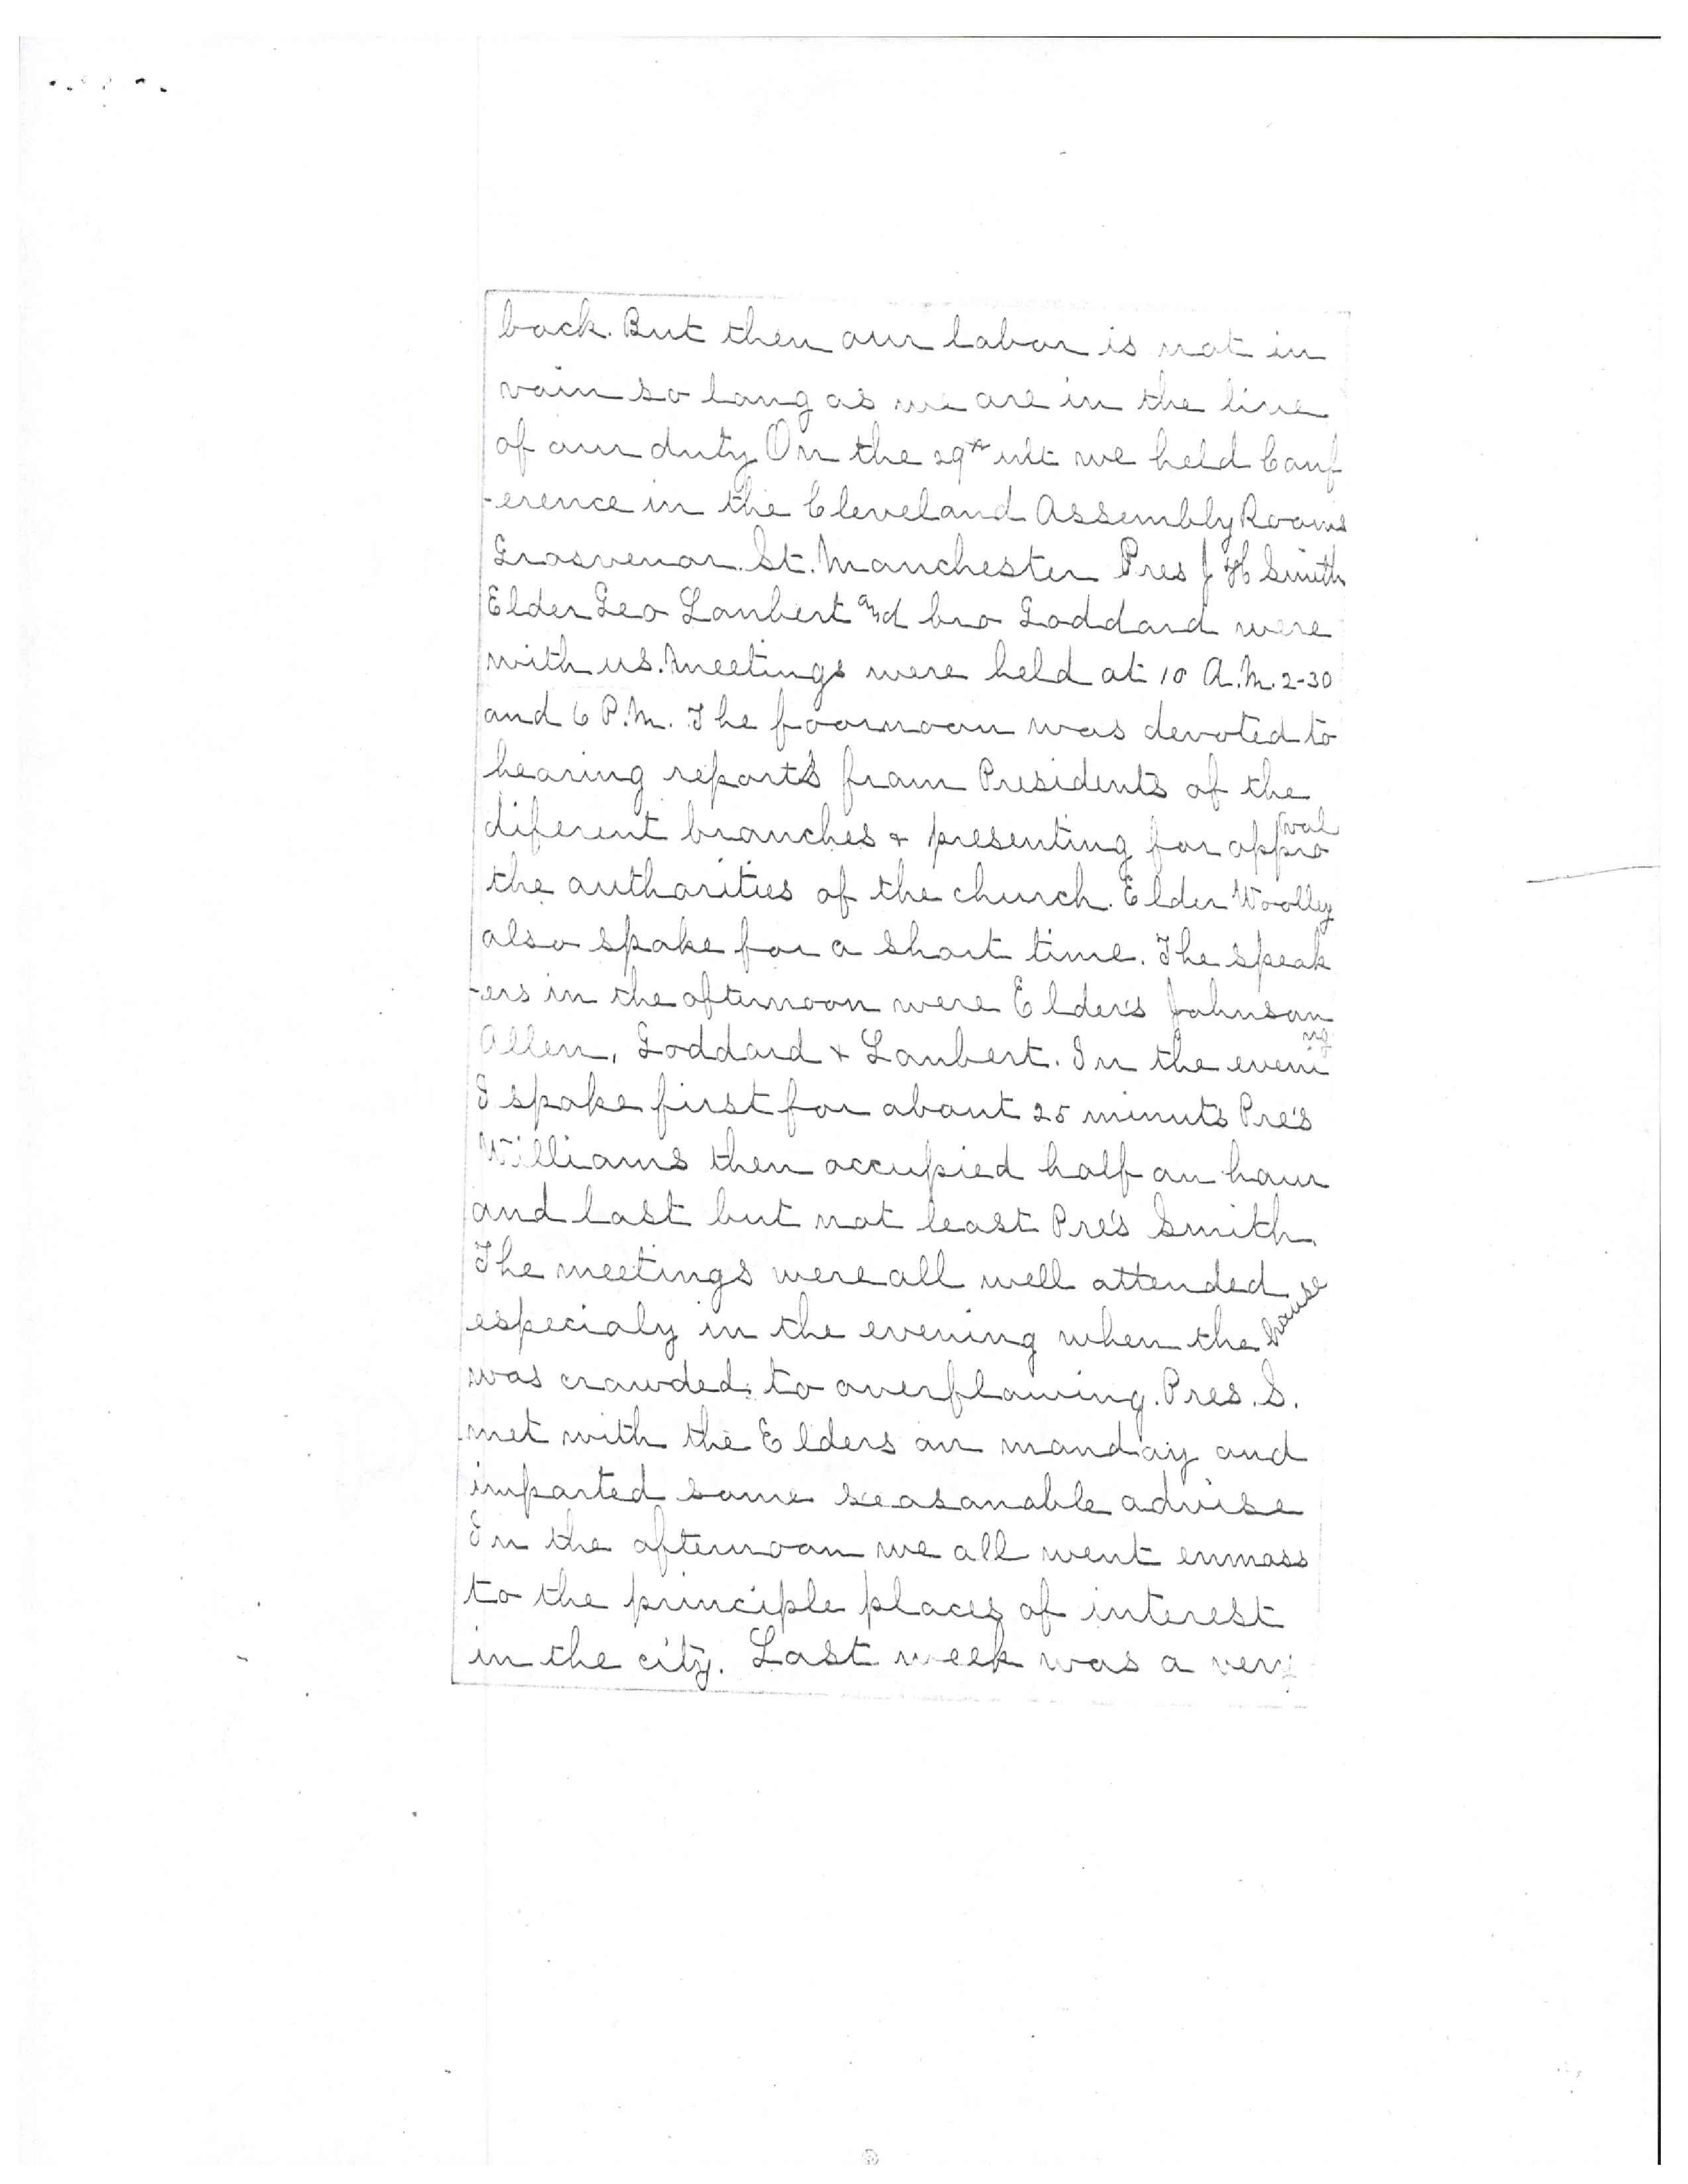 back. But then our labor is not in
vain so long as we are in the line
of our duty On the 29th ult we held Conf
-erence in the Cleveland Assembly Rooms
Grosvenor. St. Manchester Pres J H Smith
Elder Geo Lanbert and bro Goddard were
with us. Meetings were held at 10 A.M. 2-30
and 6 P.M. The foornoon was devoted to
hearing reports from Presidents of the
diferent branches + presenting for approval
the authorities of the church. Elder Woolley
also spoke for a short time. The speak
-ers in the afternoon were Elders Johnson
Allen, Goddard + Lanbert. In the evening
I spoke first for about 25 minuts Pres
Williams then occupied half an hour
and last but not least Pres Smith.
The meetings were all well attended
especialy in the evening when the house
was crowded to overflowing. Pres. S.
met with the Elders on monday and
imparted some seasonable advise
In the afternoon we all went enmass
to the principle places of interest
in the city. Last week was a very